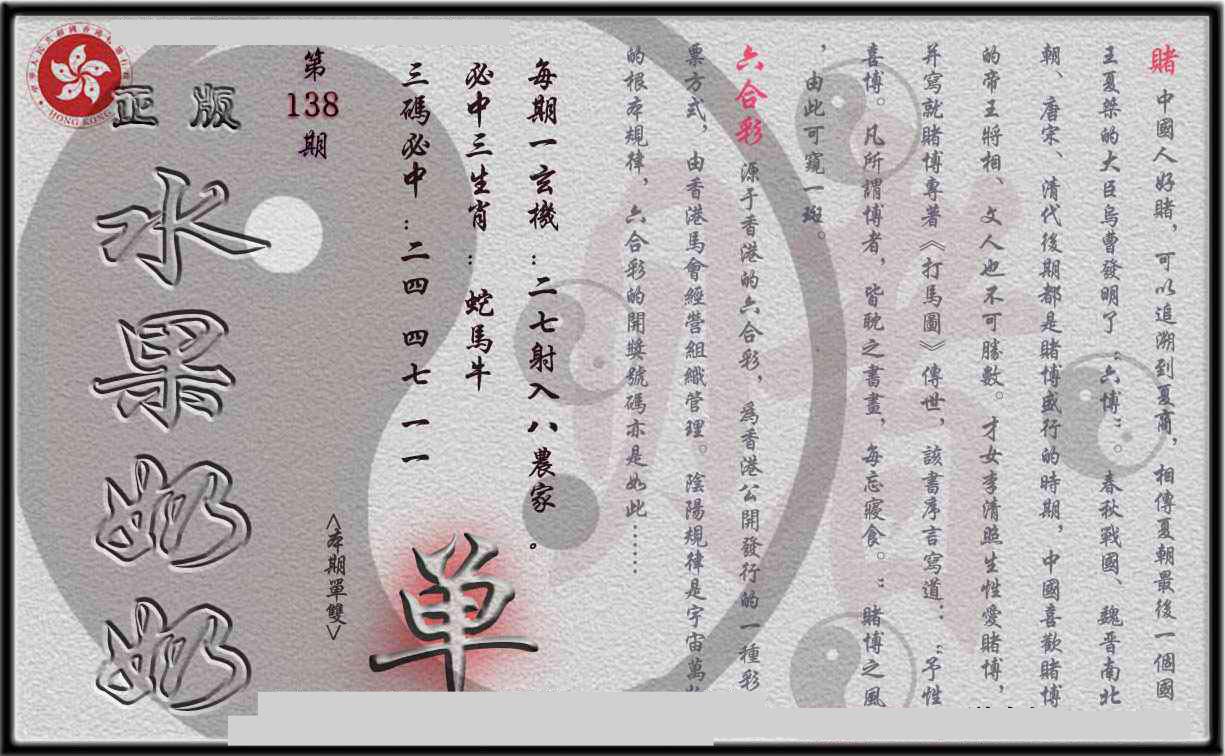 賭 中國人好賭，可以追溯到夏商，相傳夏朝最後一個國
王夏桀的大臣烏曹發明了“六博”。春秋戰國、魏晋南北
朝、唐宋、清代後期都是賭博盛行的時期，中國喜歡賭博
的帝王將相、文人也不可勝數。才女李清照生性愛賭博，
并寫就賭博專著《打馬圖》傳世，該書序言寫道：“予性
喜博。凡所謂博者，皆耽之書畫，每忘寢食。”賭博之風
，由此可窺一斑。
六合彩 源于香港的六合彩，爲香港公開發行的一種彩
票方式，由香港馬會經營組織管理。陰陽規律是宇宙萬
的根本規律，六合彩的開獎號碼亦是如此……
每期一玄機：二七射入八農家。
必中三生肖：蛇馬牛
三碼必中：二四 四七 一一
第
138
期
<本期單雙>
单
正版
水果奶奶
HONG KONG